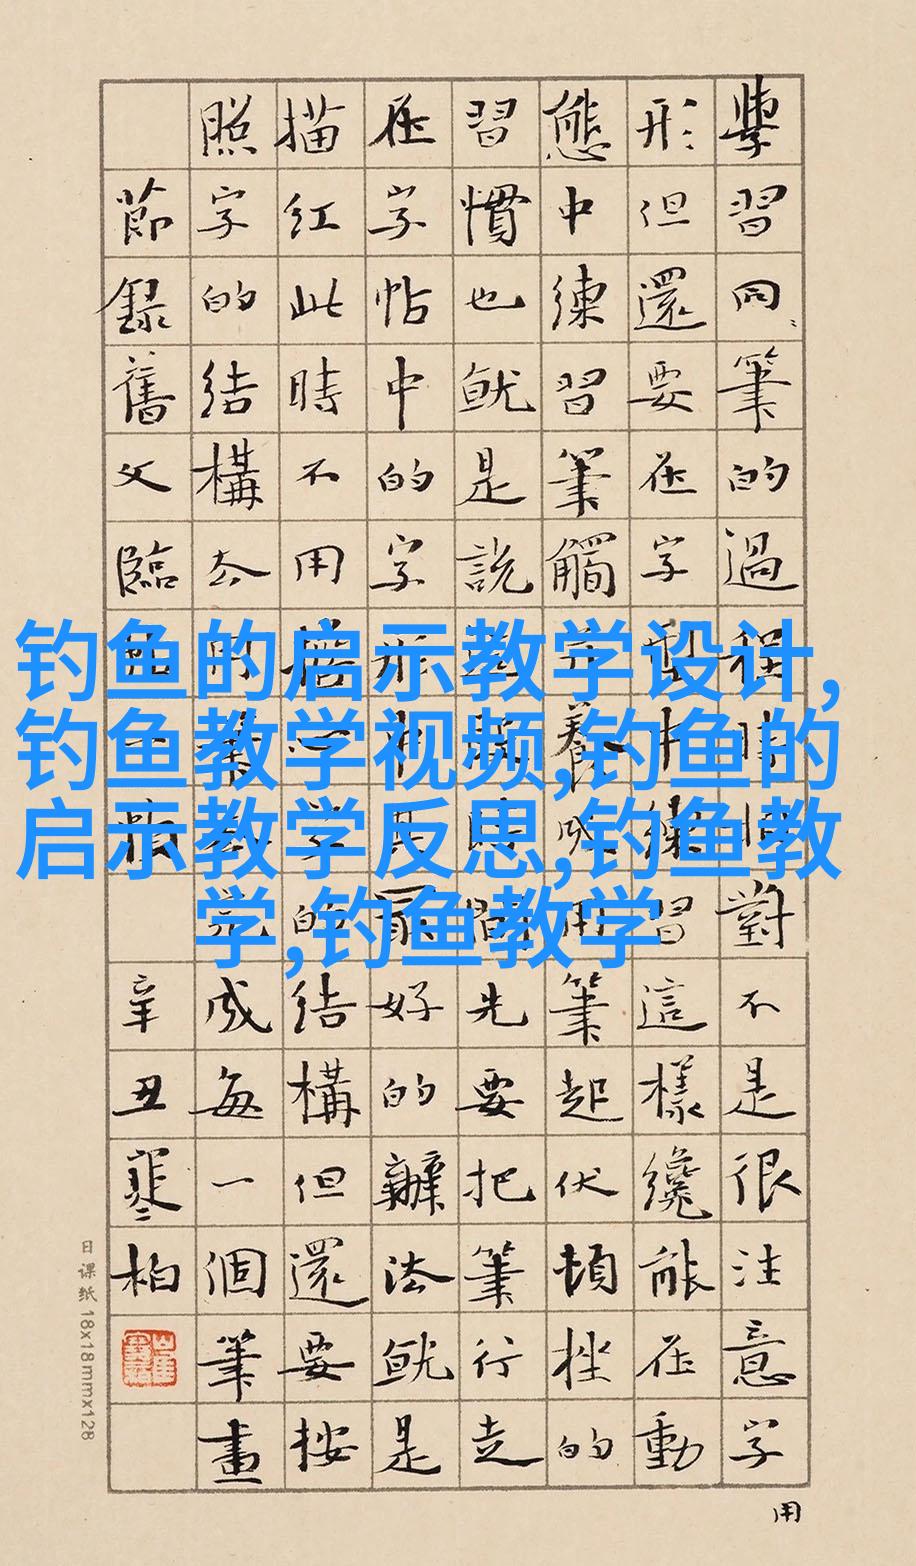 學習同筆的過程時對不是很注意字
形但還要在字動中練習這樣纔能在動
態中練習筆觸養成用筆起伏頓挫的
習慣也就是說時間先要把筆行走
在字帖中的字形中最好的辦法就是
描紅此時不用一的結構但還要按
照字的結構去完成每一個筆畫
節錄舊文臨
辛丑寒柏
用
日课纸 18x18mmx128
钓鱼的启示教学设计,
钓鱼教学视频,钓鱼的
启示教学反思,钓鱼教
学,钓鱼教学